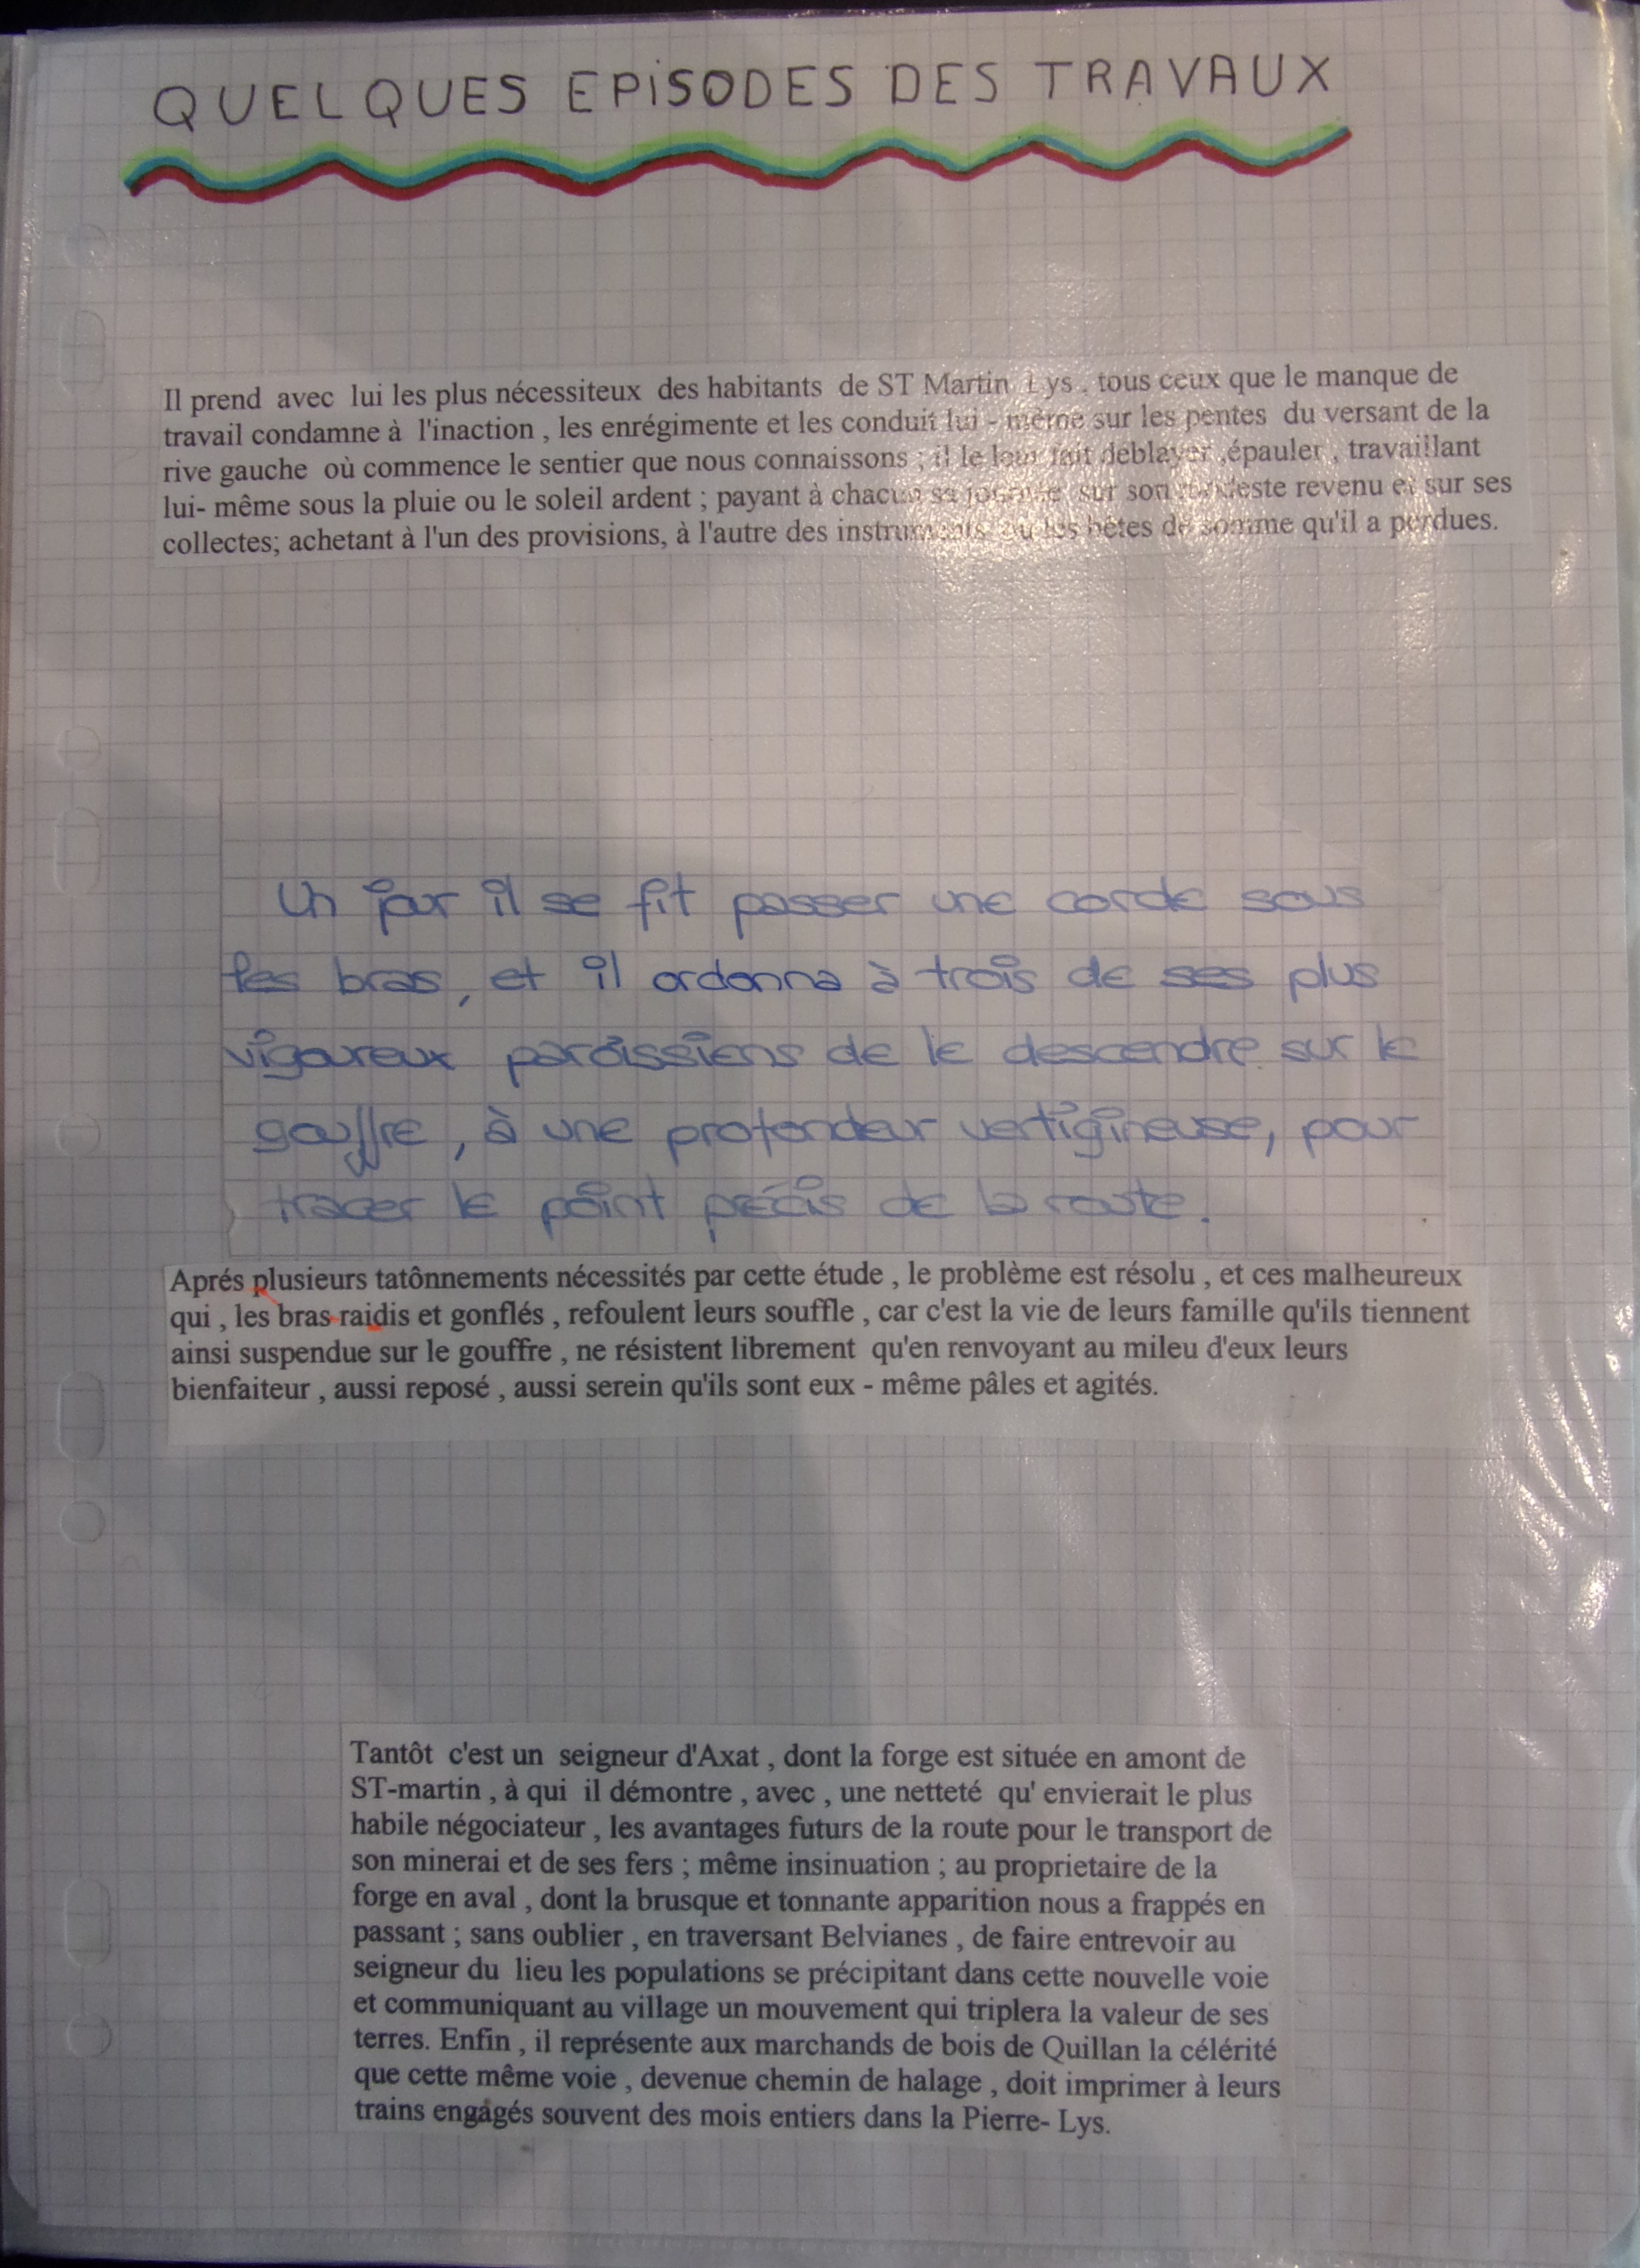 QUELQUES EPISODES DES TRAVAUX
Il prend avec lui les plus nécessiteux des habitants de ST Martin Lys , tous ceux que le manque de
travail condamne à l'inaction , les enrégimente et les conduit lui - même sur les pentes du versant de la
rive gauche où commence le sentier que nous connaissons ; il le leur fait déblayer ,épauler , travaillant
lui- même sous la pluie ou le soleil ardent ; payant à chacun sa journée sur son modeste revenu et sur ses
collectes; achetant à l'un des provisions, à l'autre des instruments ou les bêtes de somme qu'il a perdues.
Un jour il se fit passer une corde sous
les bras, et il ordonna à trois de ses plus
vigoureux paroissiens de le descendre sur le
gouffre, à une profondeur vertigineuse, pour
tracer le point précis de la route.
Aprés plusieurs tatônnements nécessités par cette étude , le problème est résolu , et ces malheureux
qui , les bras raidis et gonflés , refoulent leurs souffle , car c'est la vie de leurs famille qu'ils tiennent
ainsi suspendue sur le gouffre , ne résistent librement qu'en renvoyant au mileu d'eux leurs
bienfaiteur , aussi reposé , aussi serein qu'ils sont eux - même pâles et agités.
Tantôt c'est un seigneur d'Axat , dont la forge est située en amont de
ST-martin , à qui il démontre , avec , une netteté qu' envierait le plus
habile négociateur , les avantages futurs de la route pour le transport de
son minerai et de ses fers ; même insinuation ; au proprietaire de la
forge en aval , dont la brusque et tonnante apparition nous a frappés en
passant ; sans oublier , en traversant Belvianes , de faire entrevoir au
seigneur du lieu les populations se précipitant dans cette nouvelle voie
et communiquant au village un mouvement qui triplera la valeur de ses
terres. Enfin , il représente aux marchands de bois de Quillan la célérité
que cette même voie , devenue chemin de halage , doit imprimer à leurs
trains engagés souvent des mois entiers dans la Pierre- Lys.